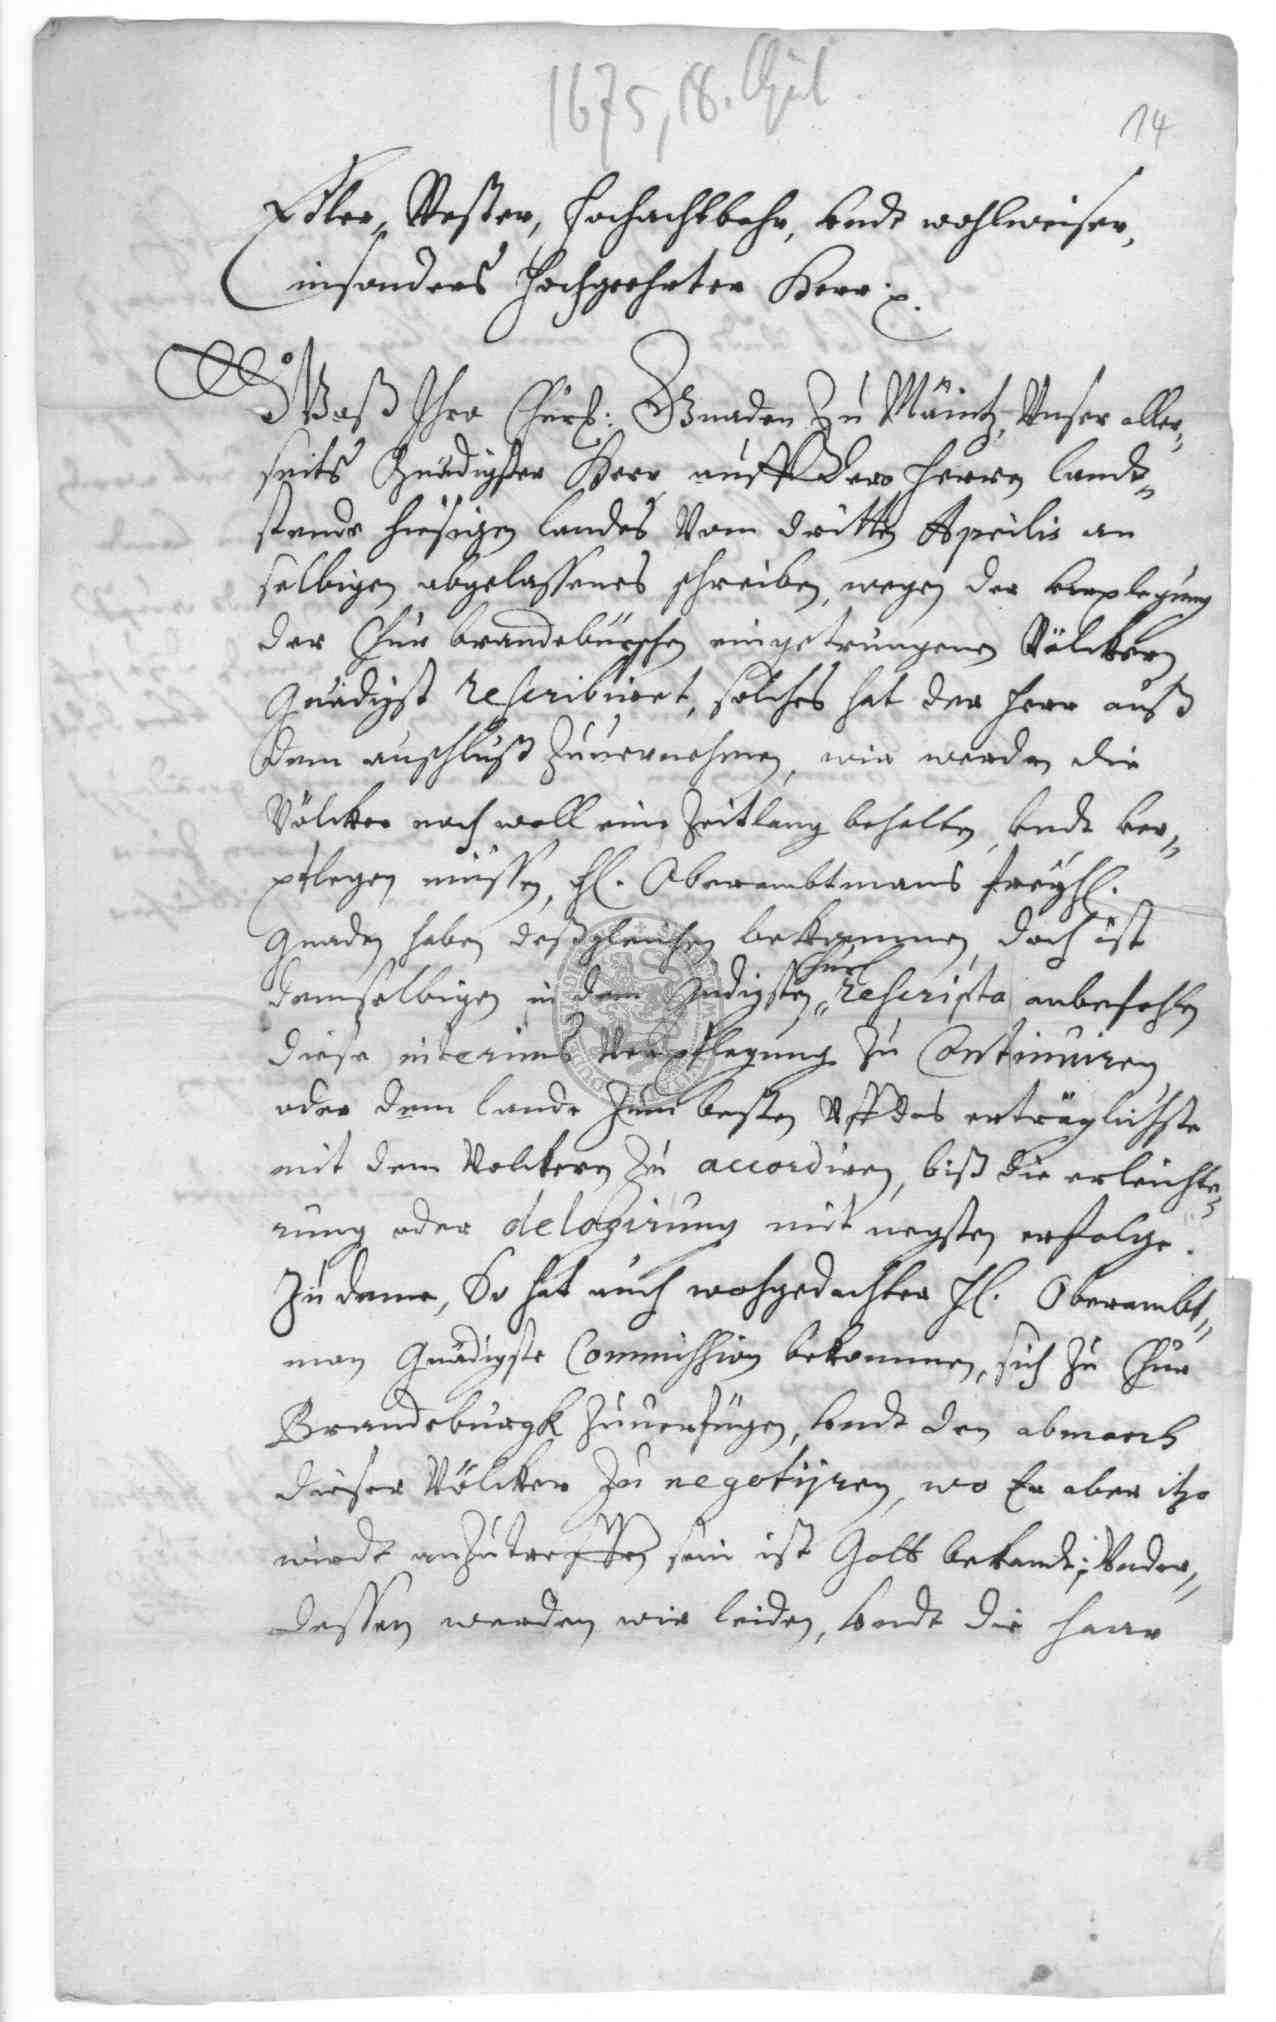 1675, 18. April
14
Edler, Vester, Hochachtbahr, undt wohlweiser,
insonders Hochgeehrter Herr p.
Waß Ihro Churf: Gnaden zu Mäintz, Unser aller„
seits Gnädigster Herr auff dero Herren landt„
stende hiesigen landes vom dritten Aprilis an
selbigen abgelassenes schreiben, wegen der verplegung
der Chur brandeburschen eingetrungenen Völckern
Gnädigst rescribiret, solches hat der Herr auß
dem anschluß zuvernehmen, wir werden die
Völcker noch woll eine zeitlang behalten, undt ver„
pflegen müssen, H. Oberambtmans freyhl.
Gnaden haben deßgleichen bekommen, doch ist
churf.
demselbigen in dem Gndigsten „ rescripto anbefohlen
diese interims Verpflegung zu Continuiren
oder dem lande zum besten Uff das erträglichste
mit dem Volckern zu accordiren, biß die erleichte„
rung oder delogirung mit negsten erfolge.
Zu deme, So hat auch wohgedachter H. Oberambt„
man Gnädigste Commission bekommen, sich zu Chur
Brandeburgk zuverfügen, undt den abmarch
dieser Völcker zu negotijren, wo Er aber itzo
wirdt anzutreffen sein ist Gott bekandt; Under„
dessen werden wir leiden, undt die haar